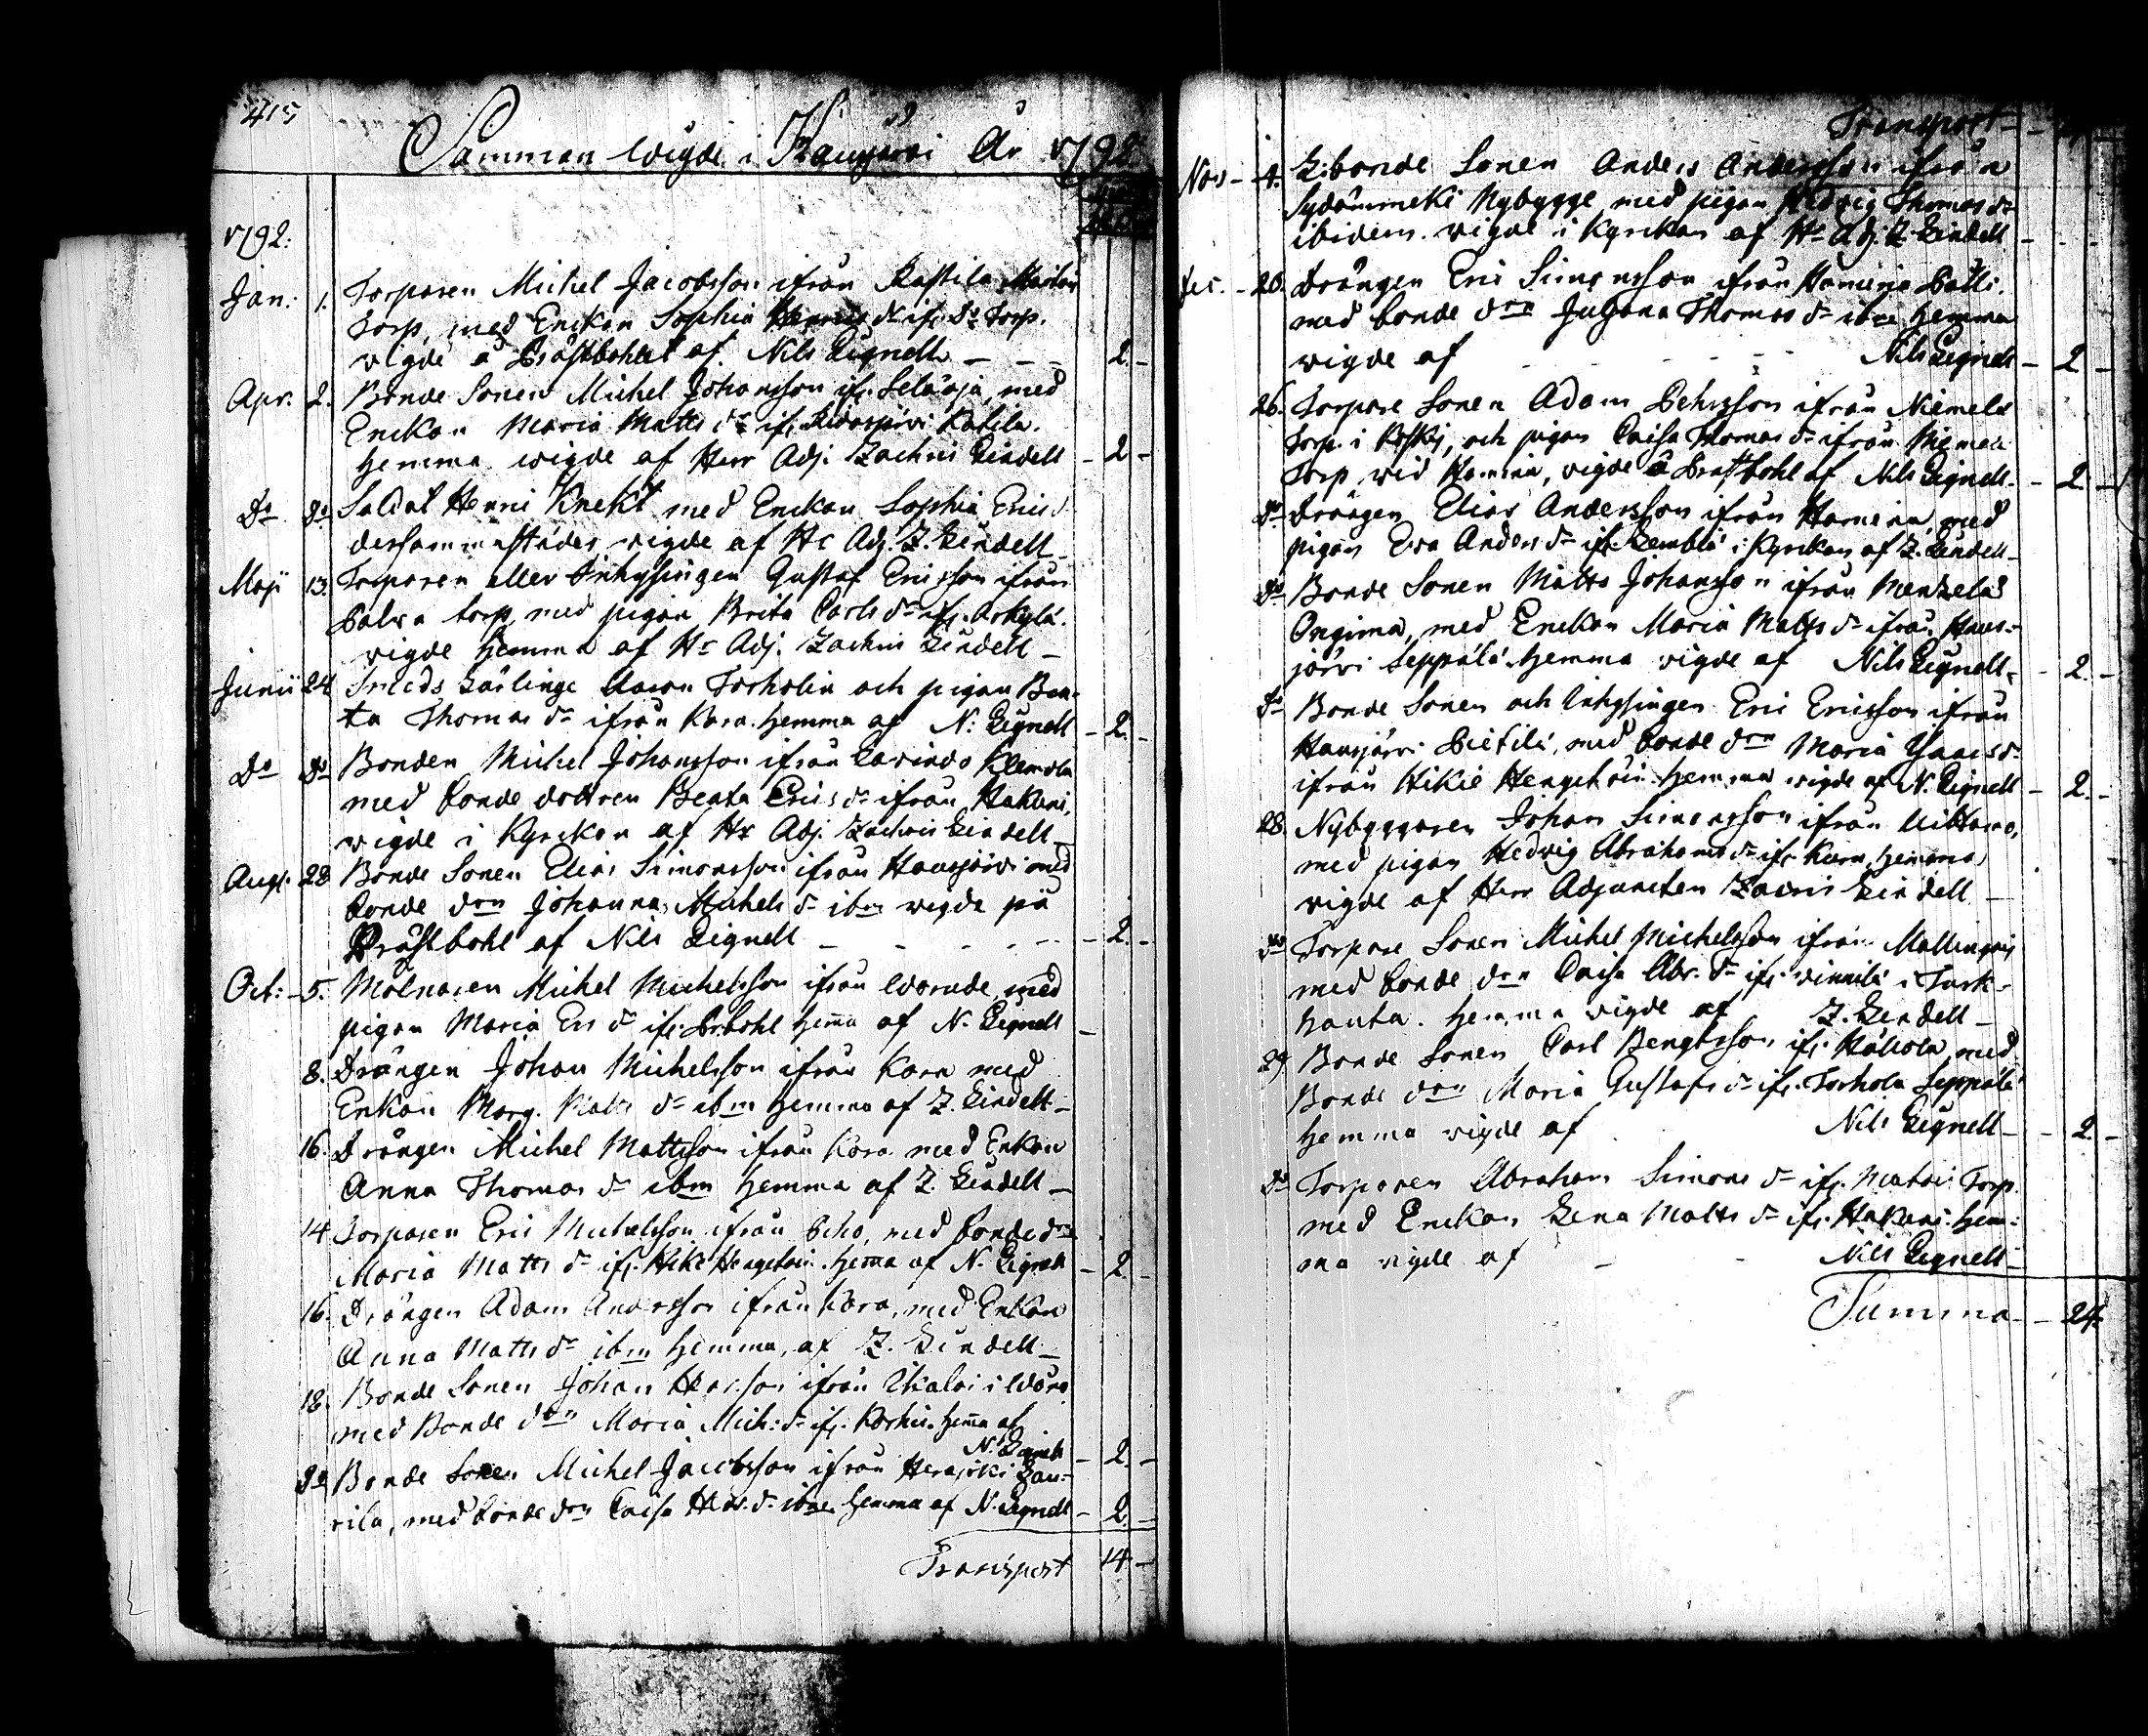 415
Sammanwigde i Hausjärvi År 1792
1792:
Jan: 1. Torparen Michel Jacobsson ifrån Rastila
Torp, med Enckan Sophia Henrics dr ifr. Do Torp.
vigde å Prästbohlet af Nils Lignell – 2. –
Apr. 2. Bonde Sonen Michel Johansson ifr. Selänjä, med
Enckan Maria Matts dr ifr.
hemma wigde af Herr Adj. Zachris Lindell – 2 –
Do Do Soldat Henric Knekt med Enckan Sophia Erics d
dersammastädes vigde af Hr Adj. Z. Lindell –
Maji 13. Torparen eller Inhysingen Gustaf Ericsson ifrån
Palva torp, med pigan Brita Carls dr ifr.
vigde hemma af Hr Adj. Zachris Lindell –
Junii 24 Smeds Lärlinge Aaron Torholin och pigan Bea-
ta Thomas dr ifrån Kara. hemma af N: Lignell – 2. –
Do Do Bonden Michel Johansson ifrån Lavindo Klemola
med bonde dottren Beata Erics dr ifrån Hakani,
vigde i Kyrckan af Hr Adj. Zachris Lindell
Aug. 28 Bonde Sonen Elias Simonsson ifrån Hausjärvi med
bonde dren Johanna Michels dr ibm vigde på
Prästbohl af Nils Lignell – – – – 2. –
Oct: – 5. Mölnaren Michel Michelsson ifrån med
pigan Maria Ers dr ifr. Prbohl hem̄a af N. Lignell –
8. Drängen Johan Michelsson ifrån Kara med
Enkan Marg. Matts dr ibm hemma af Z. Lindell –
16. Drängen Michel Mattsson ifrån Kara med Enkan
Anna Thomas dr ibm hemma af Z. Lindell –
14 Torparen Eric Michelsson ifrån Erho, med bonde dren
Maria Matts dr ifr. Hikiä Hengstori. hem̄a af N. Lignell – 2. –
16. Drängen Adam Andersson ifrån Kara, med Enkan
Anna Matts dr ibm hemma, af Z. Lindell –
18. Bonde Sonen Johan ifrån i
med Bonde dren Maria Mich: dr ifr. Hem̄a af
N. Lignell – 2. –
Do Bonde Sonen Michel Jacobsson ifrån Herajoki Lau-
rila, med bonde dren Caisa dr ibm hemma af N. Lignell – 2. –
Transport 14. –
Transport –
Nov – 4. L:bonde Sonen Anders Andersson ifrån
Sydänmeki Nybygge med pigan Hedvig Thomas dr
ibidem. vigde i Kyrckan af Hr Adj. Z. Lindell –
Dec. – 26. Drängen Eric Simonsson ifrån Hamina Pätti.
med bonde dren Juliana Thomas dr ibm hemma
wigde af – – – – Nils Lignell – 2 –
26. Torpare Sonen Adam Pehrsson ifrån Niemelä
Torp. i Koski, och pigan Caisa Thomas dr ifrån
Torp wid Hamina, vigde å Prästbohl af Nils Lignell – 2. –
Do Drängen Elias Andersson ifrån Hamina, med
pigan Eva Anders dr ifr. i Kyrckan af Z. Lindell –
Do Bonde Sonen Matts Johansson ifrån
med Enckan Maria Matts dr ifrån Haus-
järvi Seppälä. hemma vigde af Nils Lignell – 2. –
Do Bonde Sonen och Inhysingen Eric Ericsson ifrån
Hausjärvi Pietilä, med bonde dren Maria dr
ifrån Hikiä Hengstori. hemma vigde af N. Lignell – 2. –
28. Nybyggaren Johan Simonsson ifrån
med pigan Hedvig Abrahams dr ifr. Kara, hemma
vigde af Herr Adjuncten Zacris Lindell –
Do Torpare Sonen Michel Michelsson ifrån
med bonde dren Caisa Abr. dr ifr. i Turk-
hauta. hemma vigde af Z. Lindell –
29. Bonde Sonen Carl Bengtsson ifr. med
Bonde dren Maria Gustafs dr ifr. Torhola Seppälä
hemma vigde af Nils Lignell – 2. –
Do Torparen Abraham Simons dr ifr. Torp
med Enckan Lena Matts dr ifr. Hakani. hem-
ma vigde af – – Nils Lignell –
Summa – 24.